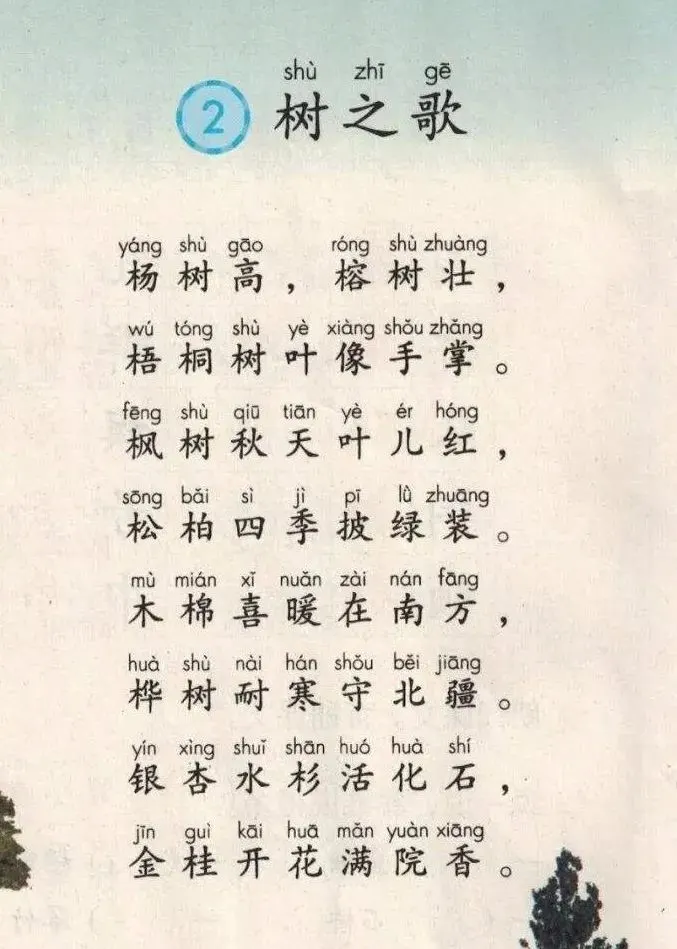 shù zhī gē
2 树之歌
yáng shù gāo róng shù zhuàng
杨树高，榕树壮，
wú tóng shù yè xiàng shǒu zhǎng
梧桐树叶像手掌。
fēng shù qiū tiān yè ér hóng
枫树秋天叶儿红，
sōng bǎi sì jì pī lǜ zhuāng
松柏四季披绿装。
mù mián xǐ nuǎn zài nán fāng
木棉喜暖在南方，
huà shù nài hán shǒu běi jiāng
桦树耐寒守北疆。
yín xìng shuǐ shān huó huà shí
银杏水杉活化石，
jīn guì kāi huā mǎn yuàn xiāng
金桂开花满院香。